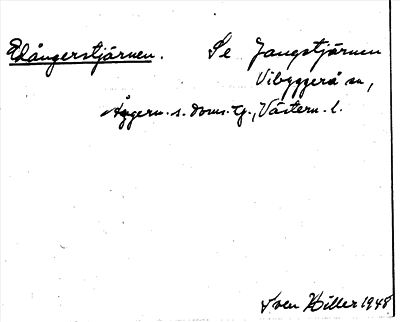 Edångerstjärnen. Se Jangstjärnen
Vibyggerå sn,
Ångerm. s. doms. g., Västern. l.
Sven Hiller 1948